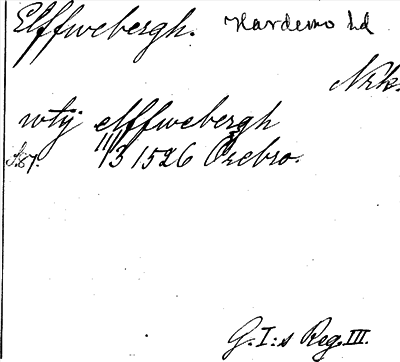 Elffwebergh. Hardemo hd
Nrk.
wtj elffwebergh
S. 87. 11/3 1526 Örebro.
G. I:s Reg. III.